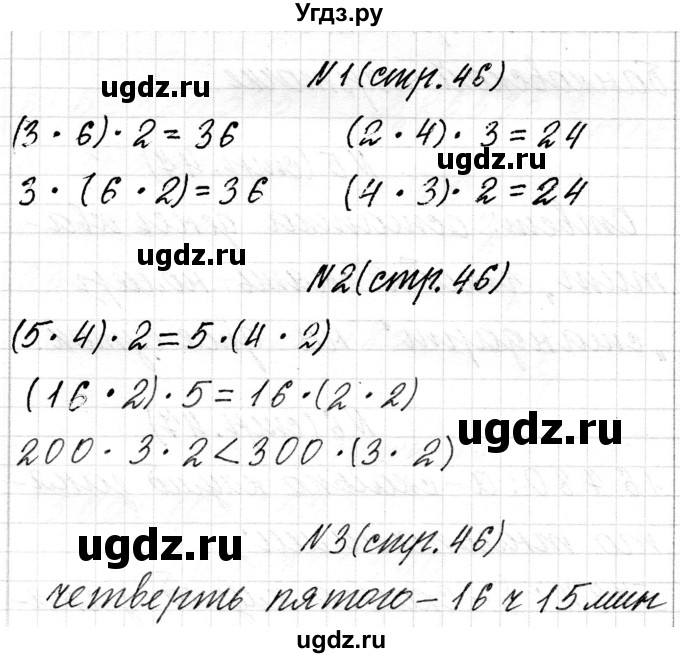 Угдз.ру
№1(стр. 46)
ugdz.ru
(3 · 6) · 2 = 36 (2 · 4) · 3 = 24
ugdz.ru
3 · (6 · 2) = 36 (4 · 3) · 2 = 24
ugdz.ru
№2(стр. 46)
(5 · 4) · 2 = 5 · (4 · 2)
(16 · 2) · 5 = 16 · (2 · 2)
ugdz.ru
200 · 3 · 2 < 300 · (3 · 2)
ugdz.ru
№3(стр. 46)
четверть пятого – 16 ч 15 мин
ugdz.ru